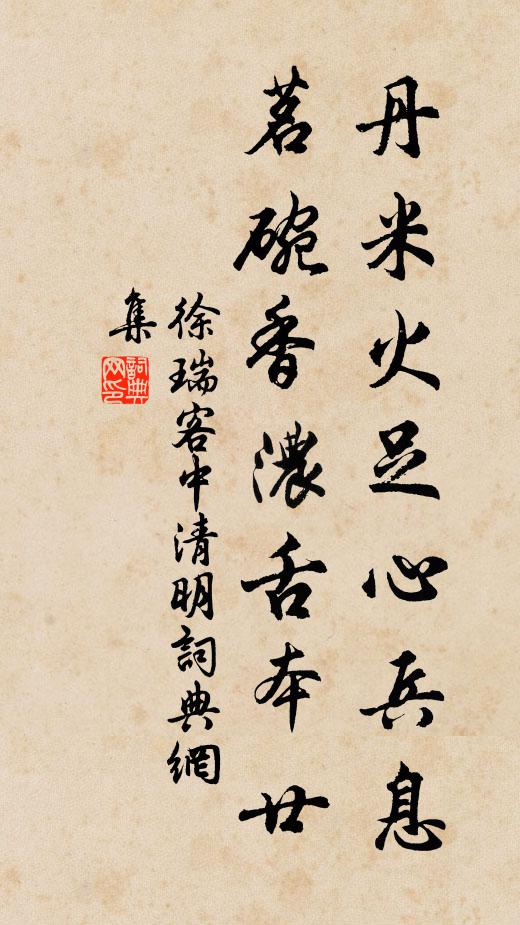 丹米火足心兵息
茗碗香濃舌本廿
徐瑞客中清明詞典網
集
詞典网印